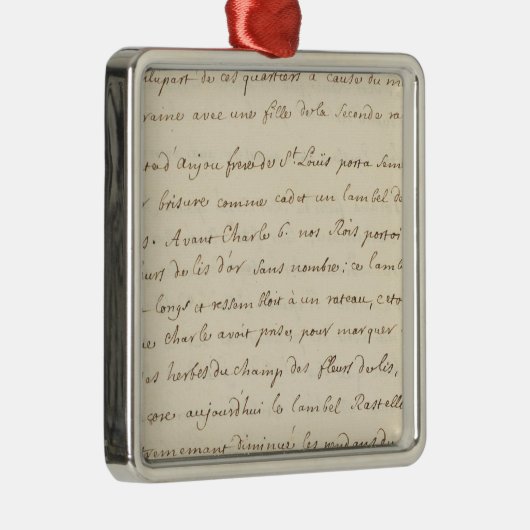 plupart de ces quartiers a cause du m
raine avec une fille de la seconde ra
te d'Anjou frere de St. Loüis porta sem
r brisure comme cadet un lambel de
s. Avant Charle 6. nos Rois portoi
urs de lis d'or sans nombre; ce lamb
-longs et ressembloit à un rateau, c'eto
ue Charle avoit prise, pour marquer
es herbes du champ des fleurs de lis,
core aujourd'huy le lambel Rastelle
vremement diminué les pendans du